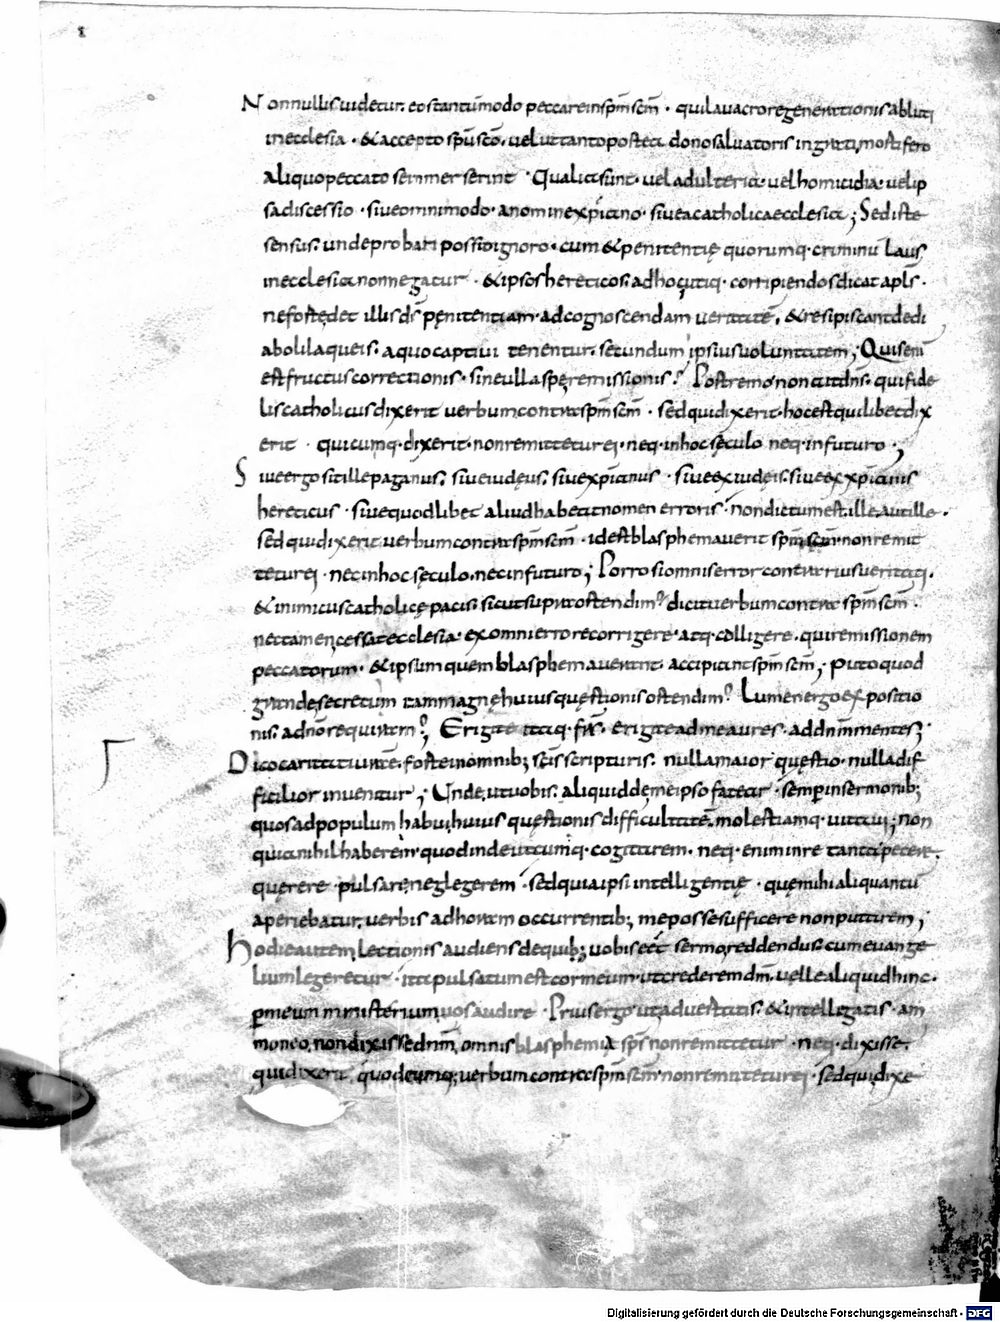 Nonnullis uidetur. eos tantūmodo peccare in spm̄ scm̄ · qui lauacro regenerationis abluti
in ecclesia · & accepto spū scō. uelut tanto postea dono saluatoris ingrati. mortifero
aliquo peccato se inmerserint · Qualia sunt · uel adulteria. uel homicidia. uel ip
sa discessio · siue omnimodo · a nomine xp̄iano · siue a catholica ecclesia ; Sed iste
sensus. unde probari possit ignoro · cum & penitentię quorumq· criminū laus
in ecclesia non negatur · & ipsos hereticos ad hoc utiq· corripiendos dicat apls̄ ·
ne forte det illis ds̄ pęnitentiam · ad cognoscendam ueritatē. & resipiscant de di
aboli laqueis. a quo captiui tenentur. secundum ipsius uoluntatem ; Quis enī
est fructus correctionis · sine ulla spe remissionis? Postremo non ait dns̄. qui fide
lis catholicus dixerit uerbum contra spm̄ scm̄ · sed qui dixerit · hoc est quilibet dix
erit · quicumq· dixerit · non remittetur ei · neq· in hoc sęculo neq· in futuro ;
Siue ergo sit ille paganus. siue iudęus. siue xp̄ianus · siue ex iudęis. siue ex xp̄ianis
hereticus · siue quodlibet aliud habeat nomen erroris · non dictum est. ille aut ille ·
sed qui dixerit uerbum contra spm̄ scm̄ · id est blasphemauerit spm̄ scm̄ · non remit
tetur ei · nec in hoc sęculo. nec in futuro ; Porro si omnis error contrarius ueritati.
& inimicus catholicę pacis. sicut supra ostendim? dicit uerbum contra spm̄ scm̄ ·
nec tamen cessat ecclesia · ex omni errore corrigere · atq· colligere · qui remissionem
peccatorum · & ipsum quem blasphemauerunt · accipiant spm̄ scm̄ ; Puto quod
grande secretum tam magnę huius quęstionis ostendim? Lumen ergo expositio
nis. ad nō requiram?; Erigite itaq· frs̄. erigite ad me aures · ad dnm̄ mentes ;
Dico caritati uestrę. forte in omnib; scīs scripturis. nulla maior quęstio · nulla dif
ficilior inuenitur ; Unde. ut uobis. aliquid de me ipso fatear · semp in sermonib;
quos ad populum habui. huius quęstionis difficultatē. molestiamq· uitaui ; non
quia nihil haberem · quod inde utcumq· cogitarem. neq· enim in re tanta petere.
quęrere · pulsare neglegerem · sed quia ipsi intelligentię · quę mihi aliquantū
aperiebatur. uerbis ad horam occurrentib; me posse sufficere non putarem ;
Hodie autem lectionis audiens de quib; uobis eēt sermo reddendus. cum euange
lium legeretur · ita pulsatum est cor meum · ut crederem dm̄ uelle aliquid hinc ·
p meum ministerium uos audire · Prius ergo ut aduertatis. & intellegatis · am
moneo. non dixisse dnm̄. omnis blasphemia sps̄ non remittetur · neq· dixisse.
qui dixerit quodcumq; uerbum contra spm̄ scm̄ · non remittetur ei · sed qui dixe
Digitalisierung gefördert durch die Deutsche Forschungsgemeinschaft - DFG